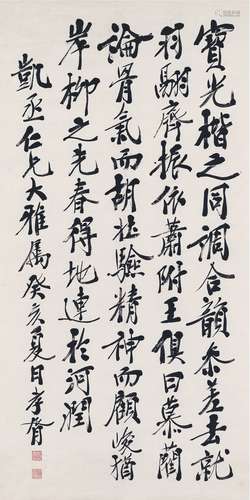 寶光楷之同調合韻參差去就
羽翮齊振依蕭附王俱曰慕藺
論骨氣而胡驗精神而顧峻猶
岸柳之先春得地連於河潤
凱丞仁兄大雅屬癸亥夏日孝胥